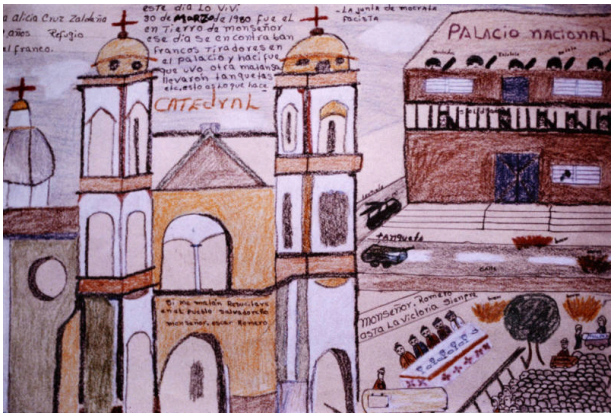 a alicia Cruz Zaldaña
años Refugio
el franco.
este dia Lo Vivi
30 de MARZO de 1980 fue el
en Tierro de monseñor
ese dia se encontra ban
francos Tiradores en
el palacio y haci fue
que uvo otra matansa
llevaron tanquetas
etc, esto es Lo que hace
- La junta de mocrata
fascista
CATEdRAL
PALACIO NACIONAL
tanqueta
CALLE
Si me matan Resucitare
en el Pueblo salvadoreño
monseñor, oscar Romero.
monseñor. Romero
asta La victoria siempre